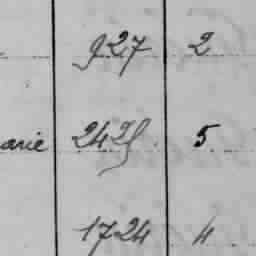 927 2
arie 2425 5
1724 4